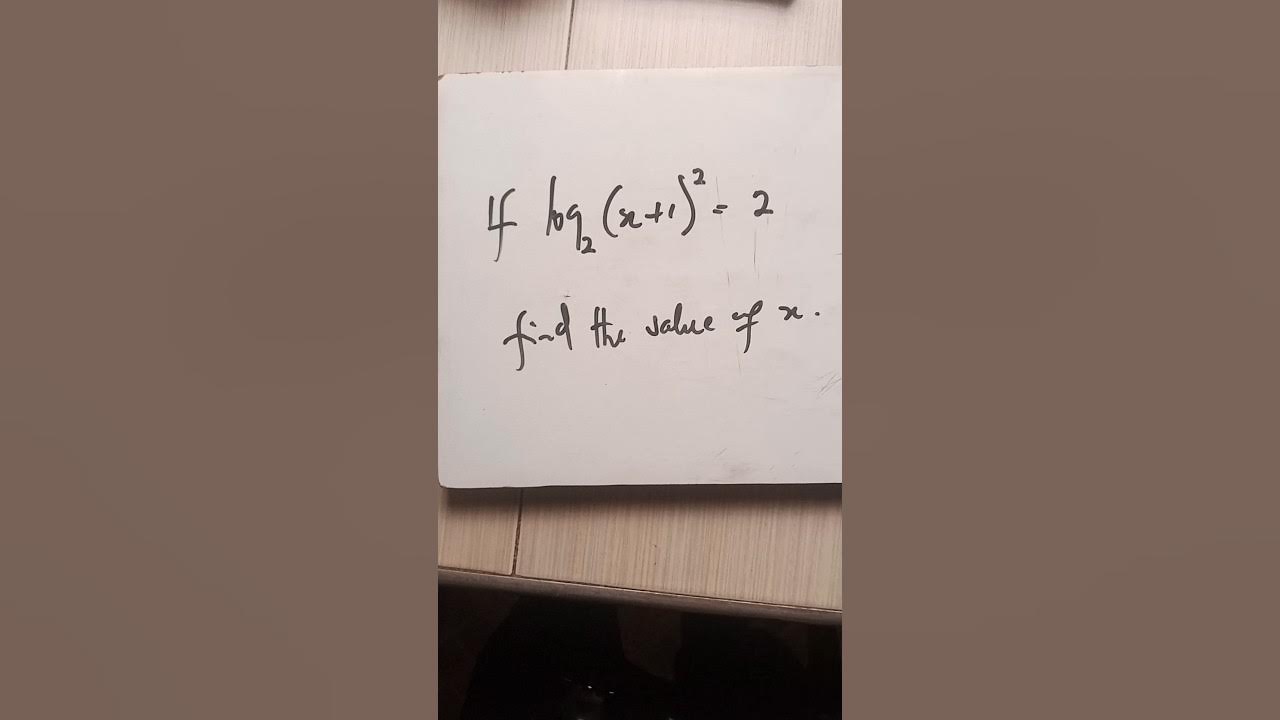 If log₂(x+1)² = 2
find the value of x.